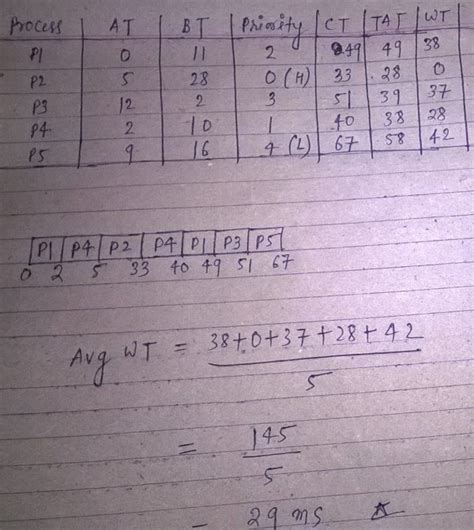 Process AT BT Priority CT TAT WT
P1 0 11 2 49 49 38
P2 5 28 0 (H) 33 28 0
P3 12 2 3 51 39 37
P4 2 10 1 40 38 28
P5 9 16 4 (L) 67 58 42
P1 P4 P2 P4 P1 P3 P5
0 2 5 33 40 49 51 67
Avg WT = 38+0+37+28+42
5
= 145
5
= 29 ms